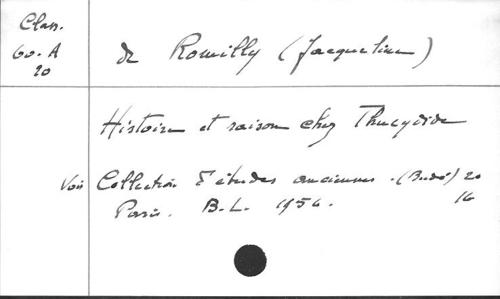 Class.
60. A
20
de Romilly (Jacqueline)
Histoire et raison chez Thucydide
Voir Collection d'études anciennes. (Budé) 20
16
Paris. B.L. 1956.